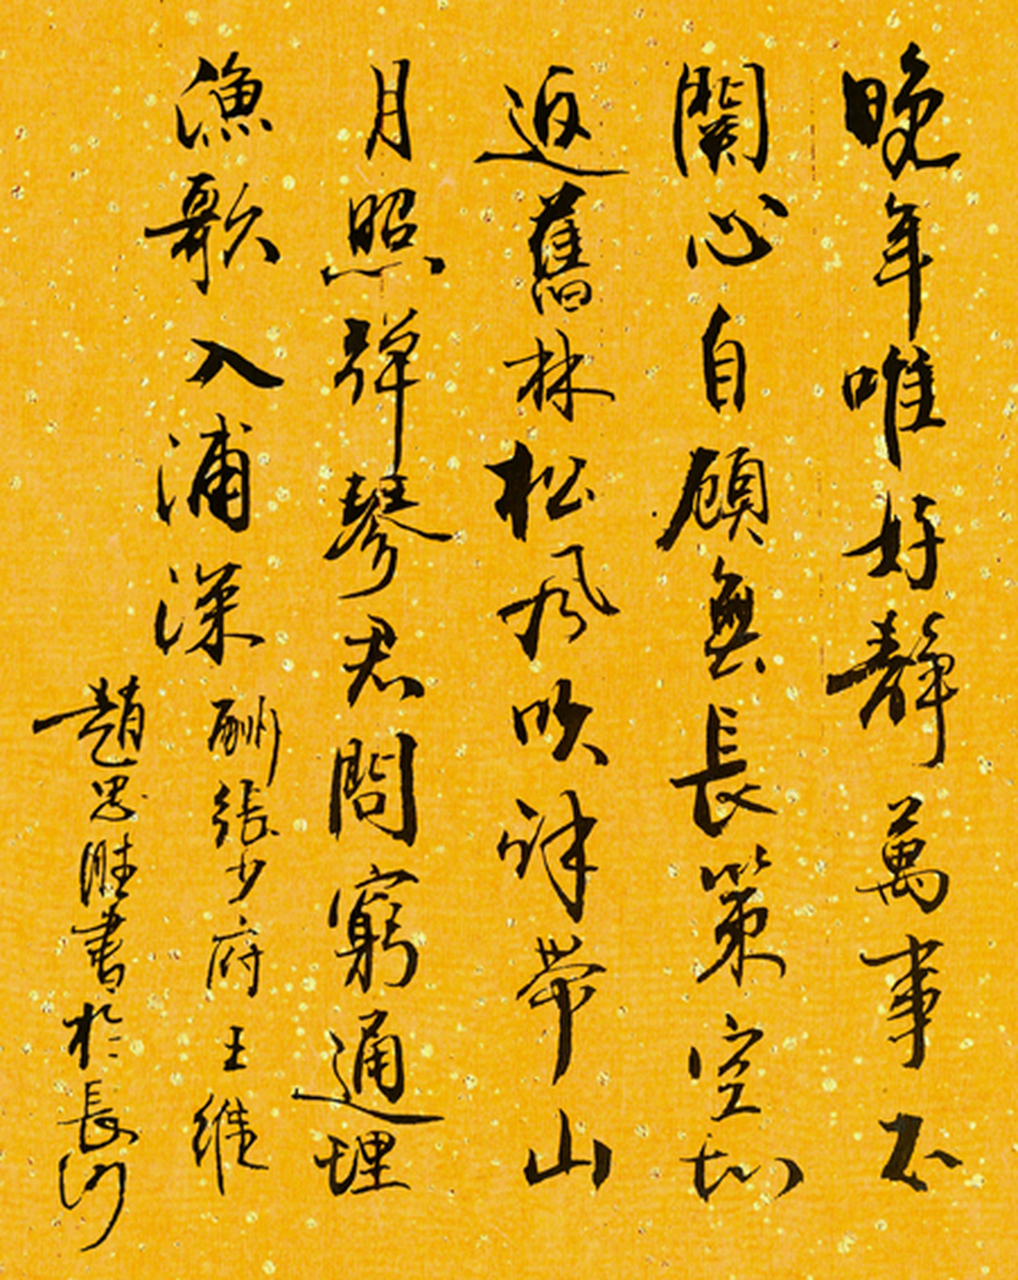 晚年唯好靜萬事不
關心自顧無長策空知
返舊林松風吹解帶山
月照彈琴君問窮通理
漁歌入浦深 酬張少府 王維
趙思胜書於長沙